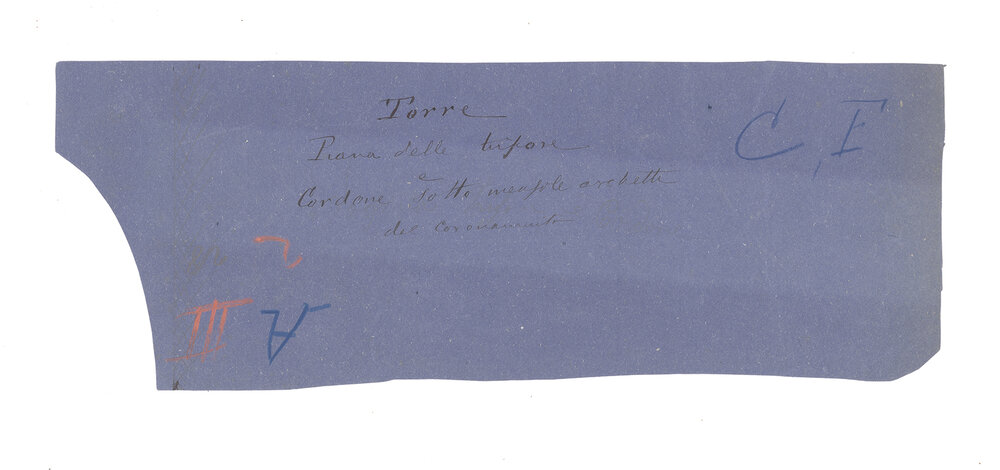 Torre
C, F
Piana delle trifore
e
Cordone sotto mensole archetti
del Coronamento
2
III A